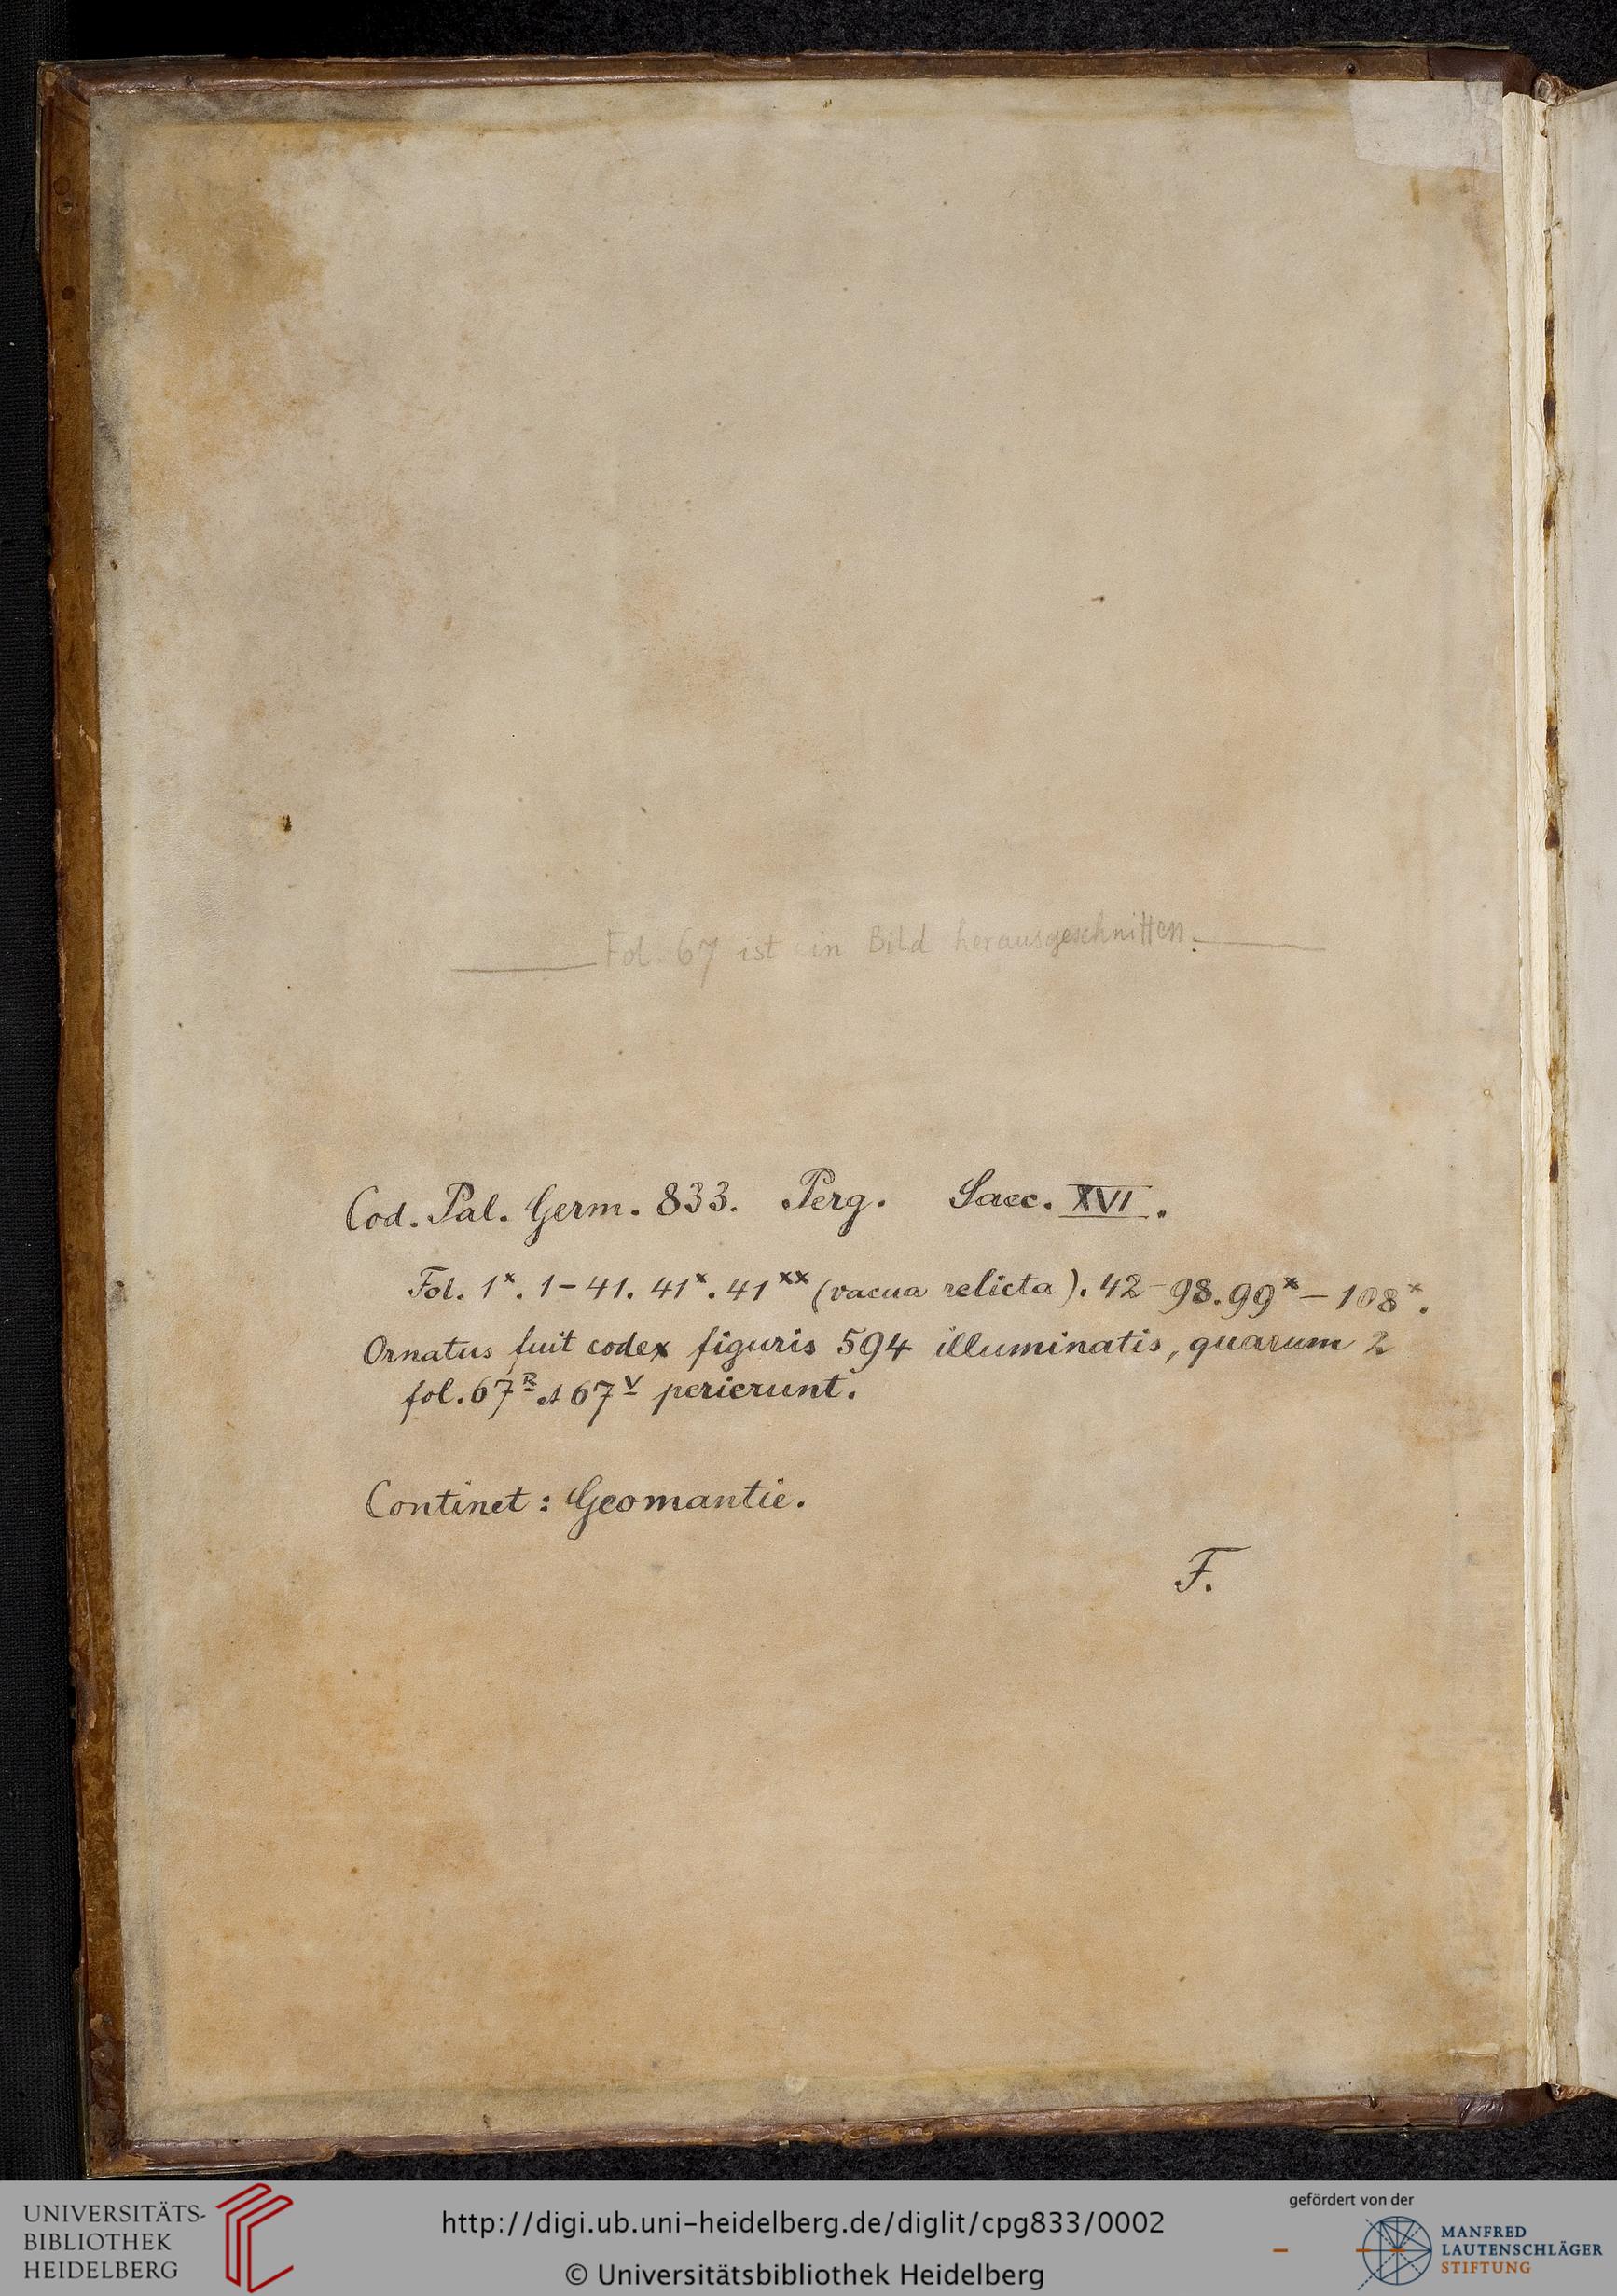 Fol. 67 ist ein Bild herausgeschnitten.
Cod. Pal. Germ. 833. Perg. Saec. XVI.
Fol. 1ˣ. 1–41. 41ˣ. 41ˣˣ (vacua relicta). 42–98. 99ˣ–108ˣ.
Ornatus fuit codex figuris 594 illuminatis, quarum 2
fol. 67ᴿ et 67ⱽ perierunt.
Continet: Geomantie.
F.
UNIVERSITÄTS-
BIBLIOTHEK
HEIDELBERG
http://digi.ub.uni-heidelberg.de/diglit/cpg833/0002
© Universitätsbibliothek Heidelberg
gefördert von der
MANFRED
LAUTENSCHLÄGER
STIFTUNG